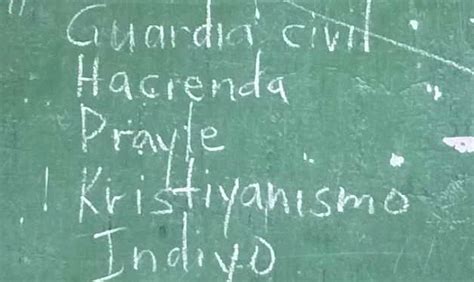 Guardia civil
Hacrenda
Prayle
Kristiyanismo
Indiyo